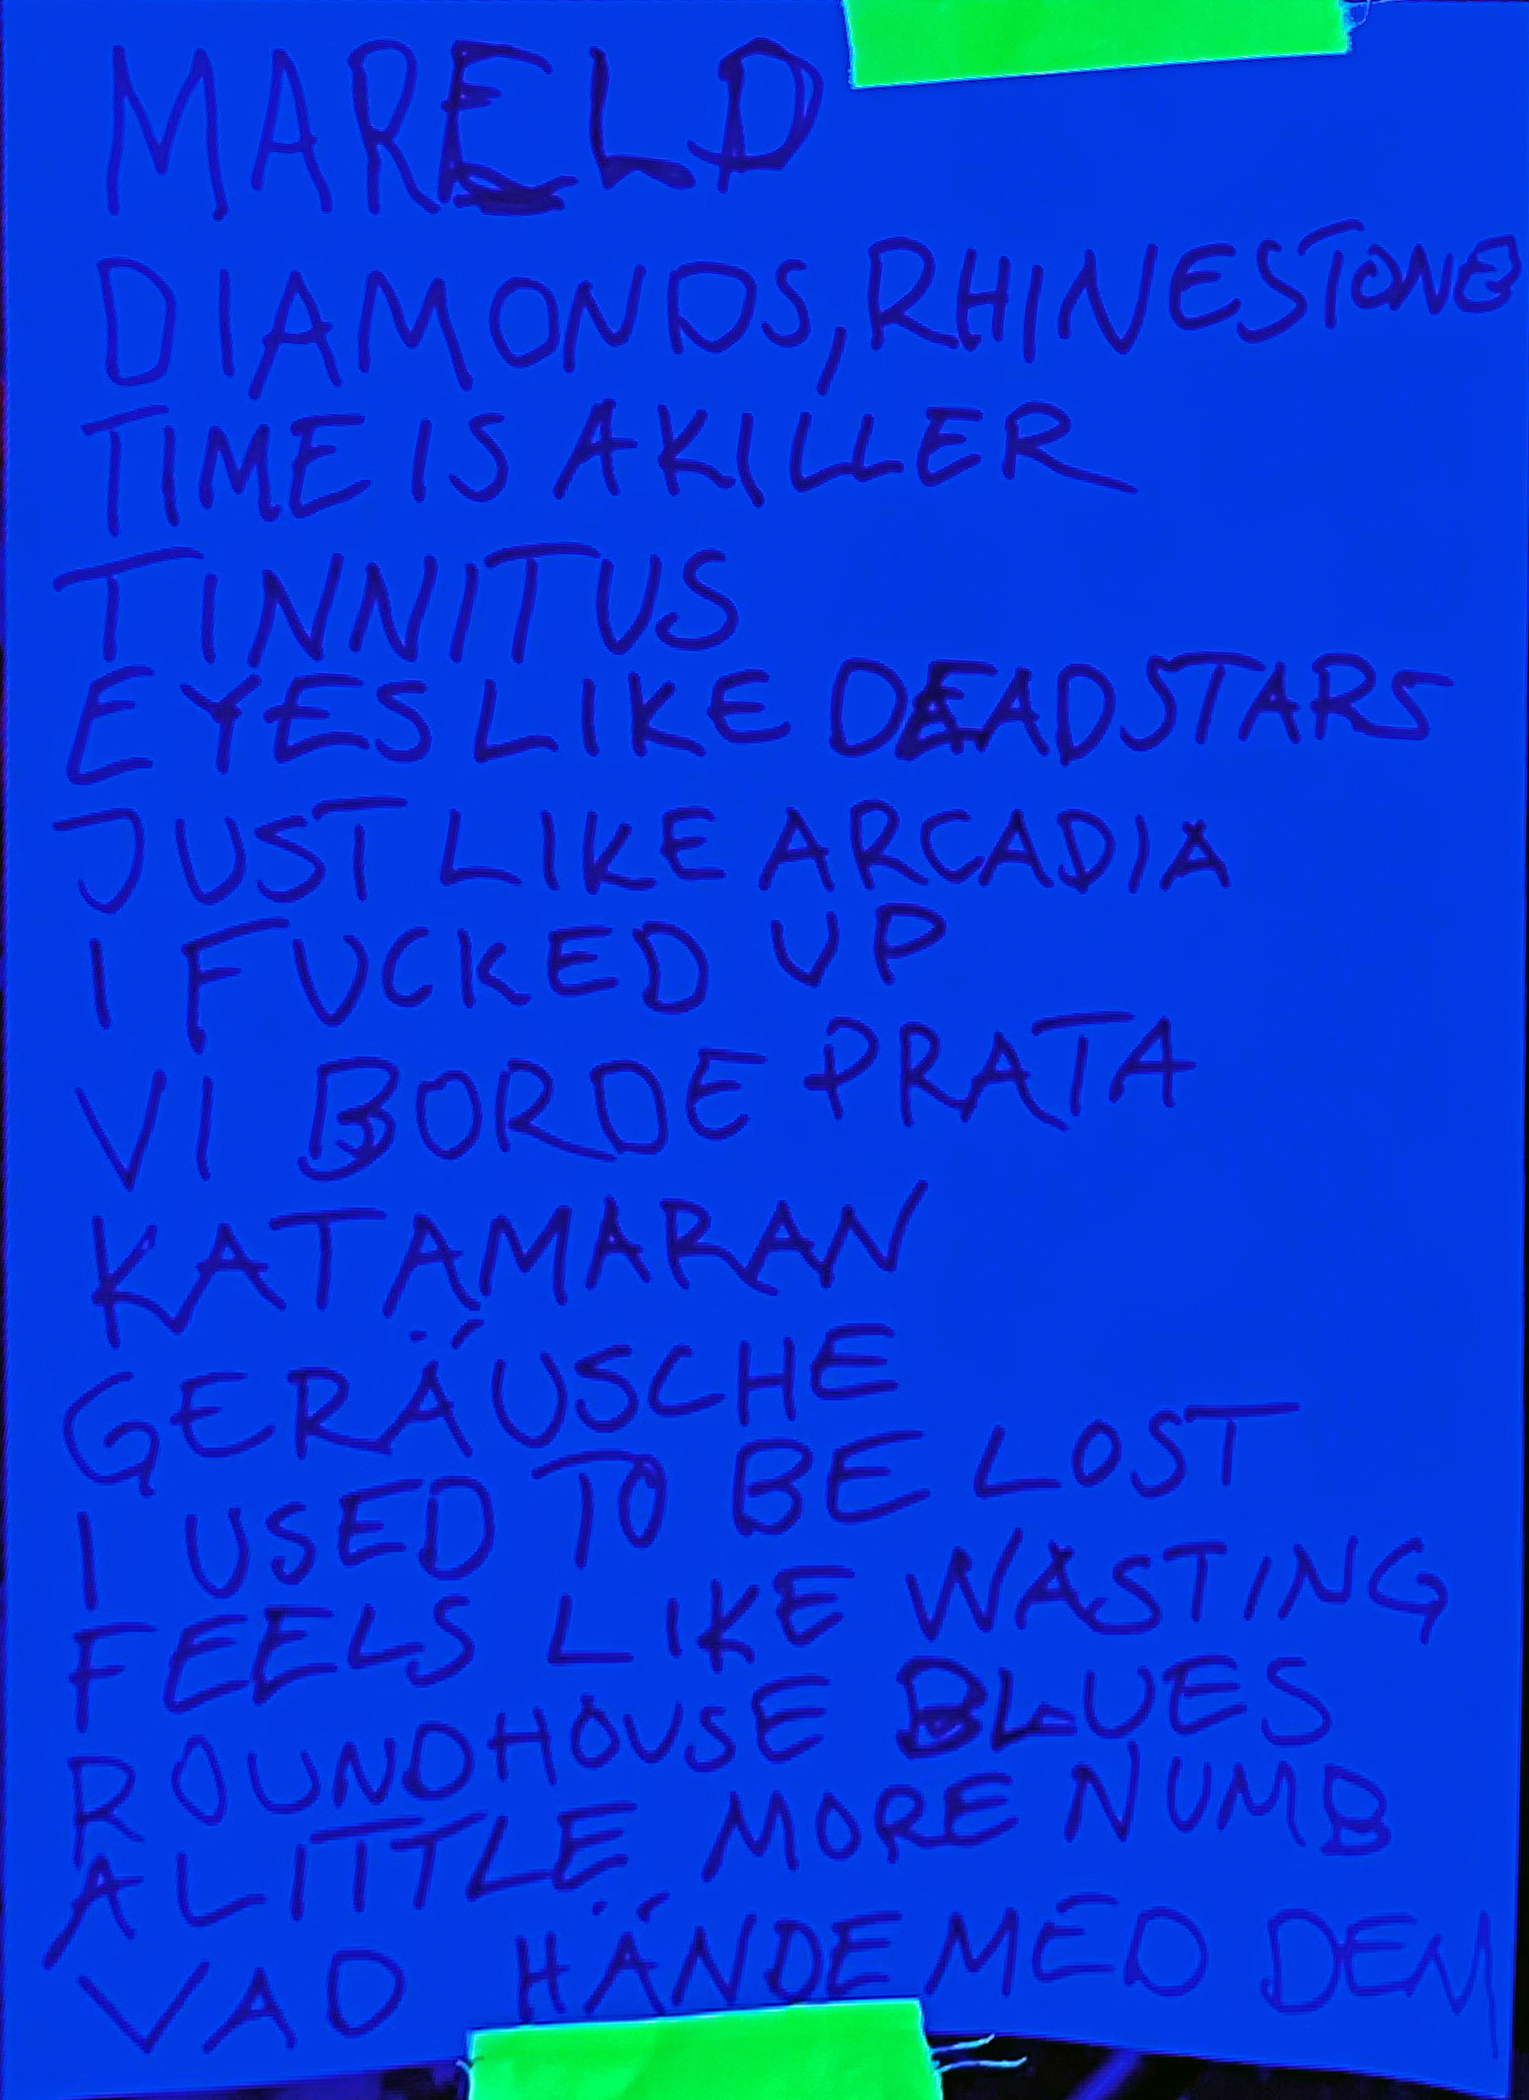 MARELD
DIAMONDS, RHINESTONE
TIME IS A KILLER
TINNITUS
EYES LIKE DEAD STARS
JUST LIKE ARCADIA
I FUCKED UP
VI BORDE PRATA
KATAMARAN
GERÄUSCHE
I USED TO BE LOST
FEELS LIKE WASTING
ROUNDHOUSE BLUES
A LITTLE MORE NUMB
VAD HÄNDE MED DEM